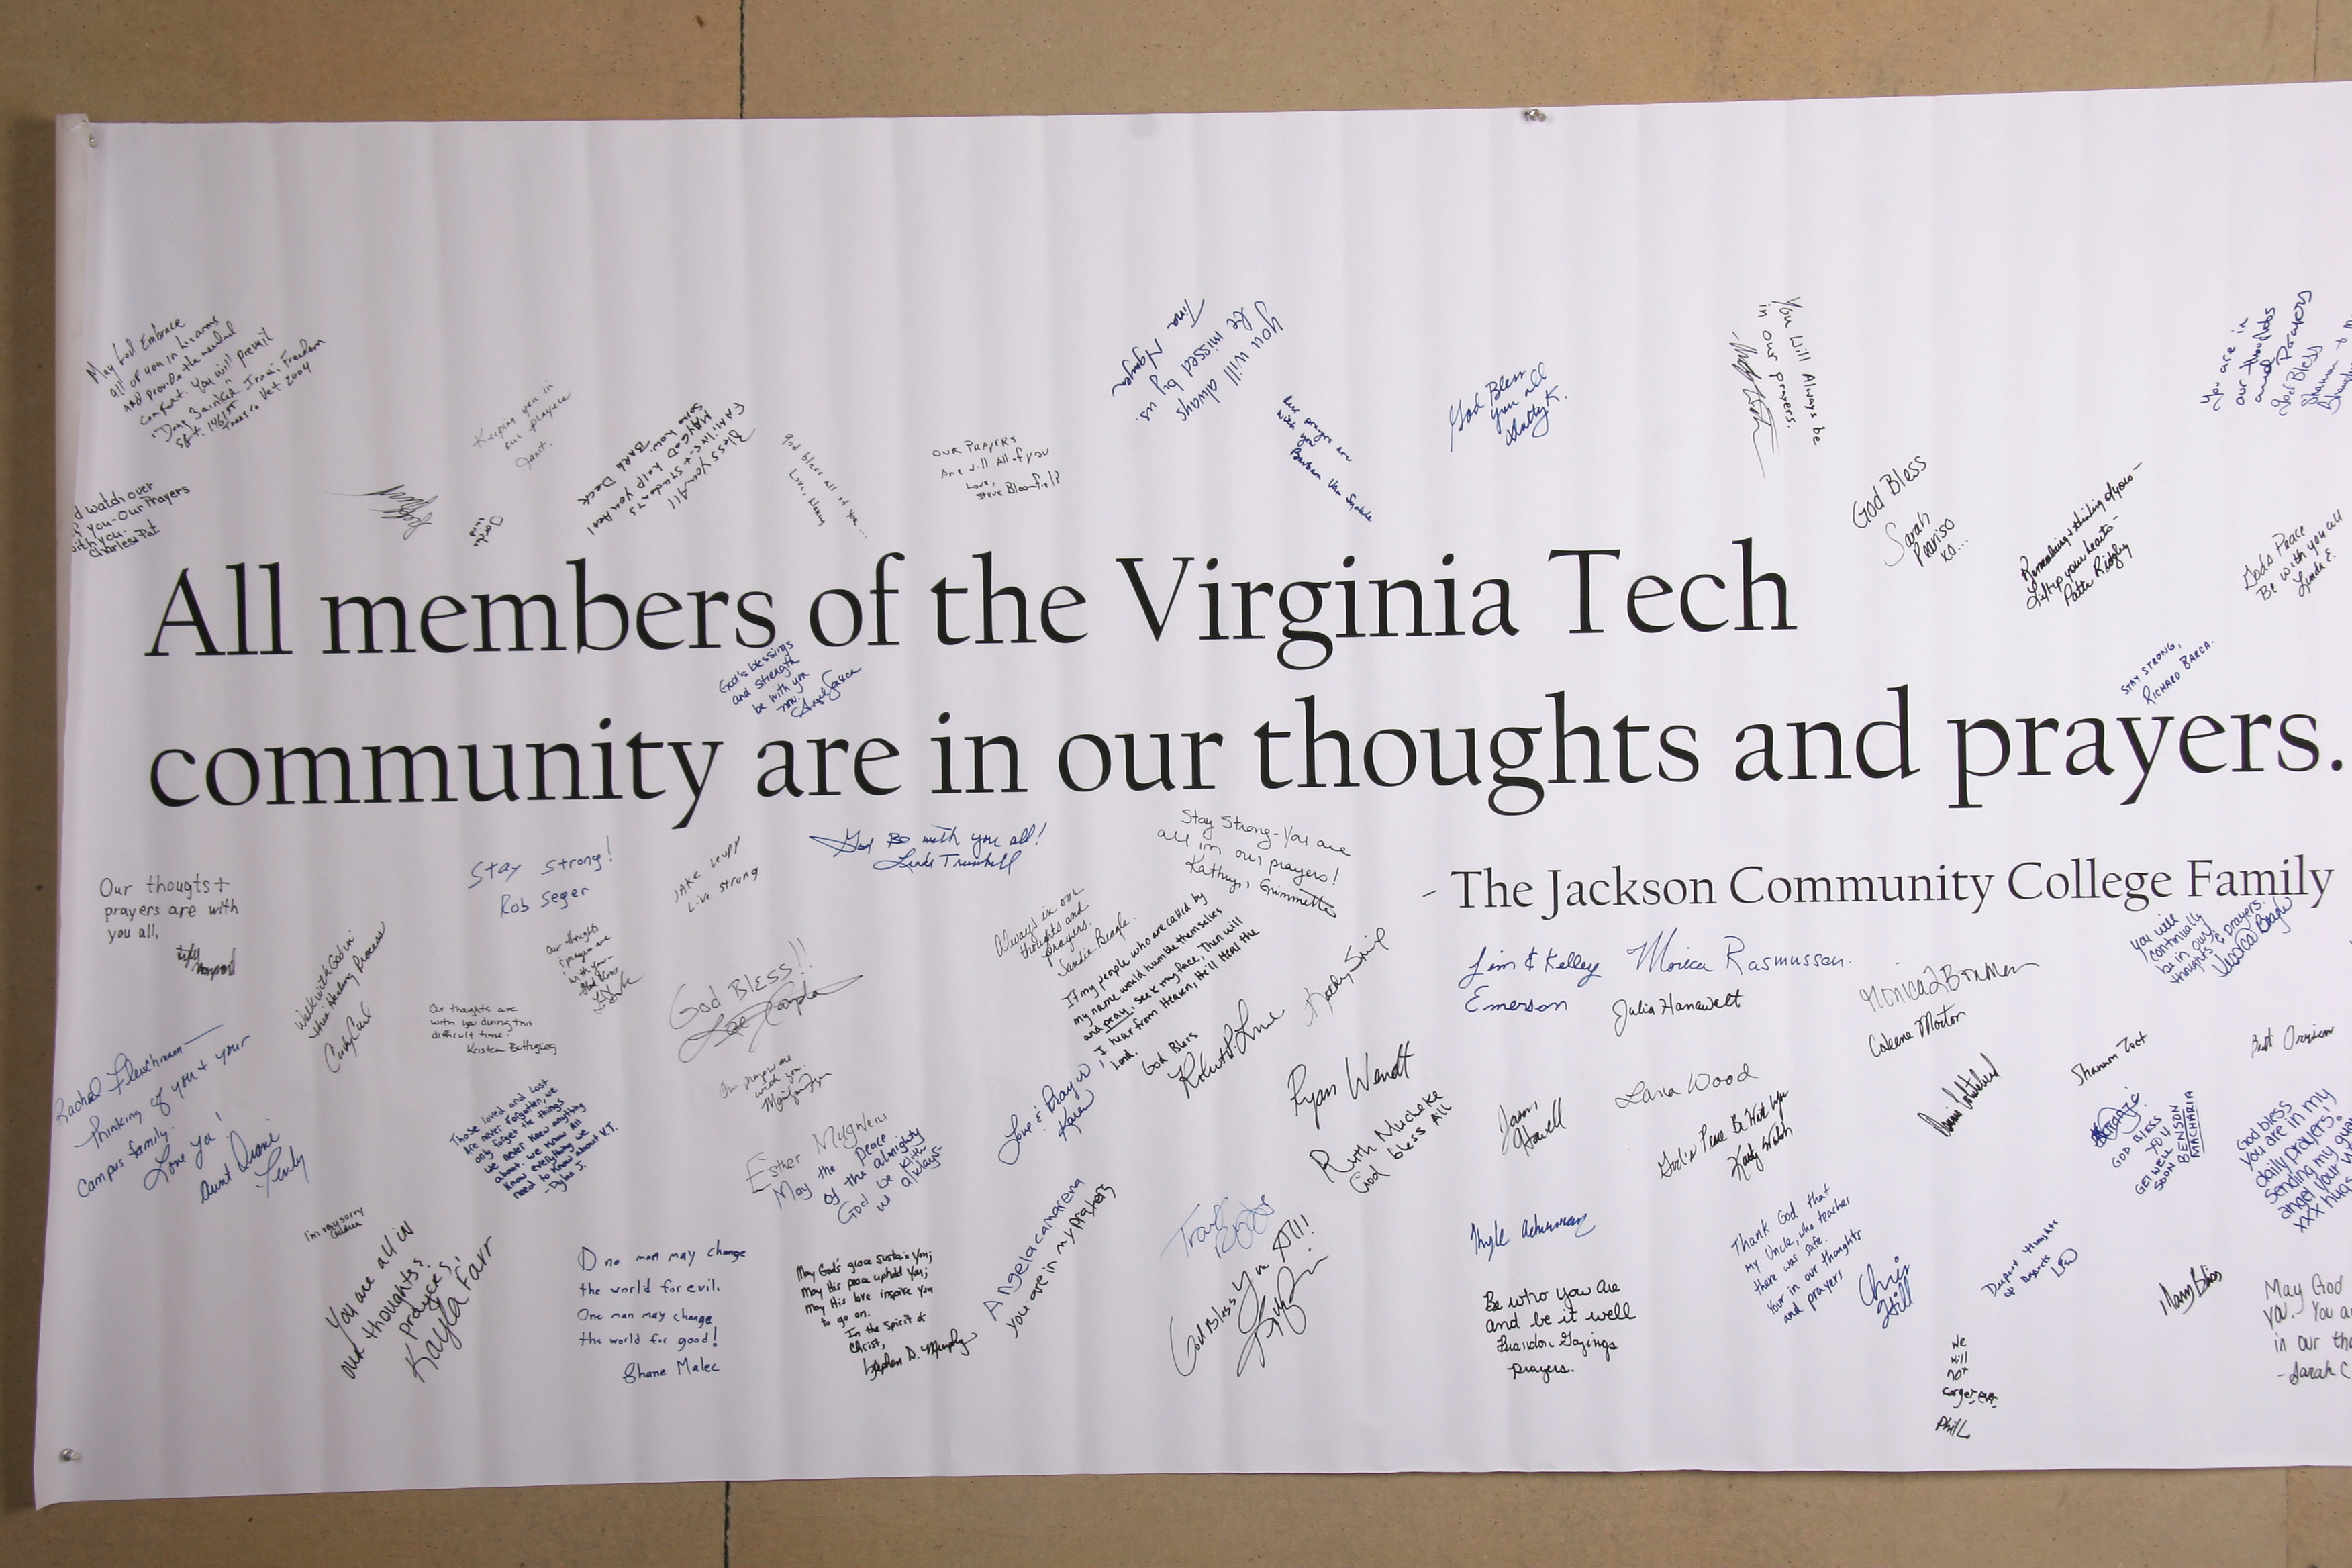 May God Embrace
all of you in his arms
and provide the needed
comfort. You will prevail
Iraqi Freedom
Vet 2004
Keeping you in
our prayers
Janet.
d watch over
you-Our Prayers
with you-
Charles+Pat
Bless You All
FAMILIES + STUDENTS
MAY GOD HELP YOU HEAL
SOME HOW. BARB DECK
God bless all of you...
Love,
OUR PRAYERS
Are will All of you
Love,
Steve Bloomfield
You will always
be missed by us.
Tina Nguyen
Our prayers are
with you
Barbara Van
God Bless
you all
Matty K.
You Will Always be
in our prayers.
God Bless
Sarah
Pariso
xo...
Remembering + thinking of you -
Lift up your hearts -
Patte Ridgley
You are in
our thoughts
and Prayers
God Bless
Gods Peace
Be with you all
Linda E.
All members of the Virginia Tech
God's blessings
and strength
be with you
now.
STAY STRONG,
RICHARD BARCA.
community are in our thoughts and prayers.
- The Jackson Community College Family
Stay strong!
Rob Seger
JAKE
Live strong
God Be with you all!
Linda Trumbell
Stay Strong- You are
all in our prayers!
Kathryn Grimmette
Our thougts +
prayers are with
you all,
Walk with God in
this Healing Process
Our thoughts
& prayers are
with you-
Our thoughts are
with you during this
difficult time.
Kristen
God Bless!!
Always in our
thoughts and
prayers.
Sandie Beagle
If my people who are called by
my name would humble themselves
and pray, seek my face, Then will
I hear from Heaven, He'll Heal the
land.
God Bless
Robert
Kathy
Jim & Kelley
Emerson
Monica Rasmussen.
Julia Hanewelt
Monica L Bowman
Coleene Morton
You will
continually
be in our
thoughts & prayers.
Jessica Beagle
Rachel Fleuchmann -
Thinking of you + your
campus family.
Love ya!
Aunt Diane
Those loved and lost
Are never forgotten, we
only forget the things
we never knew anything
about. we know all
know everything we
need to know about V.T.
-Dylan J.
Our prayers are
with you.
Esther Mugweru
May the peace
of the almighty
God be with
us always.
Love & Prayer
Karen
Ryan Wendt
Ruth Mucheke
God bless All
Howell
Lana Wood
God's Peace Be With You
Kathy Walsh
Shannon
GOD BLESS
YOU
GET WELL
SOON BENSON
MACHARIA
God bless
you are in my
daily prayers,
sending my
angel your
xxx hugs
I'm very sorry
You are all in
our thoughts &
prayers,
Kayla Farr
One man may change
the world for evil.
One man may change
the world for good!
Shane Malec
May God's grace sustain You;
May His peace uphold You;
May His love inspire You
to go on.
In the Spirit of
Christ,
Stephen D. Murphy
Angela camarena
you are in my prayers
God Bless You All!
Kyle Ackerman
Be who you are
and be it well
Brandon
prayers.
Thank God that
my Uncle, who teaches
there was safe.
Your in our thoughts
and prayers
Chris
Hill
Deepest thoughts
Mary Bliss
We
will
not
forget ever
Phil L.
May God
you. You a
in our tho
-Sarah C